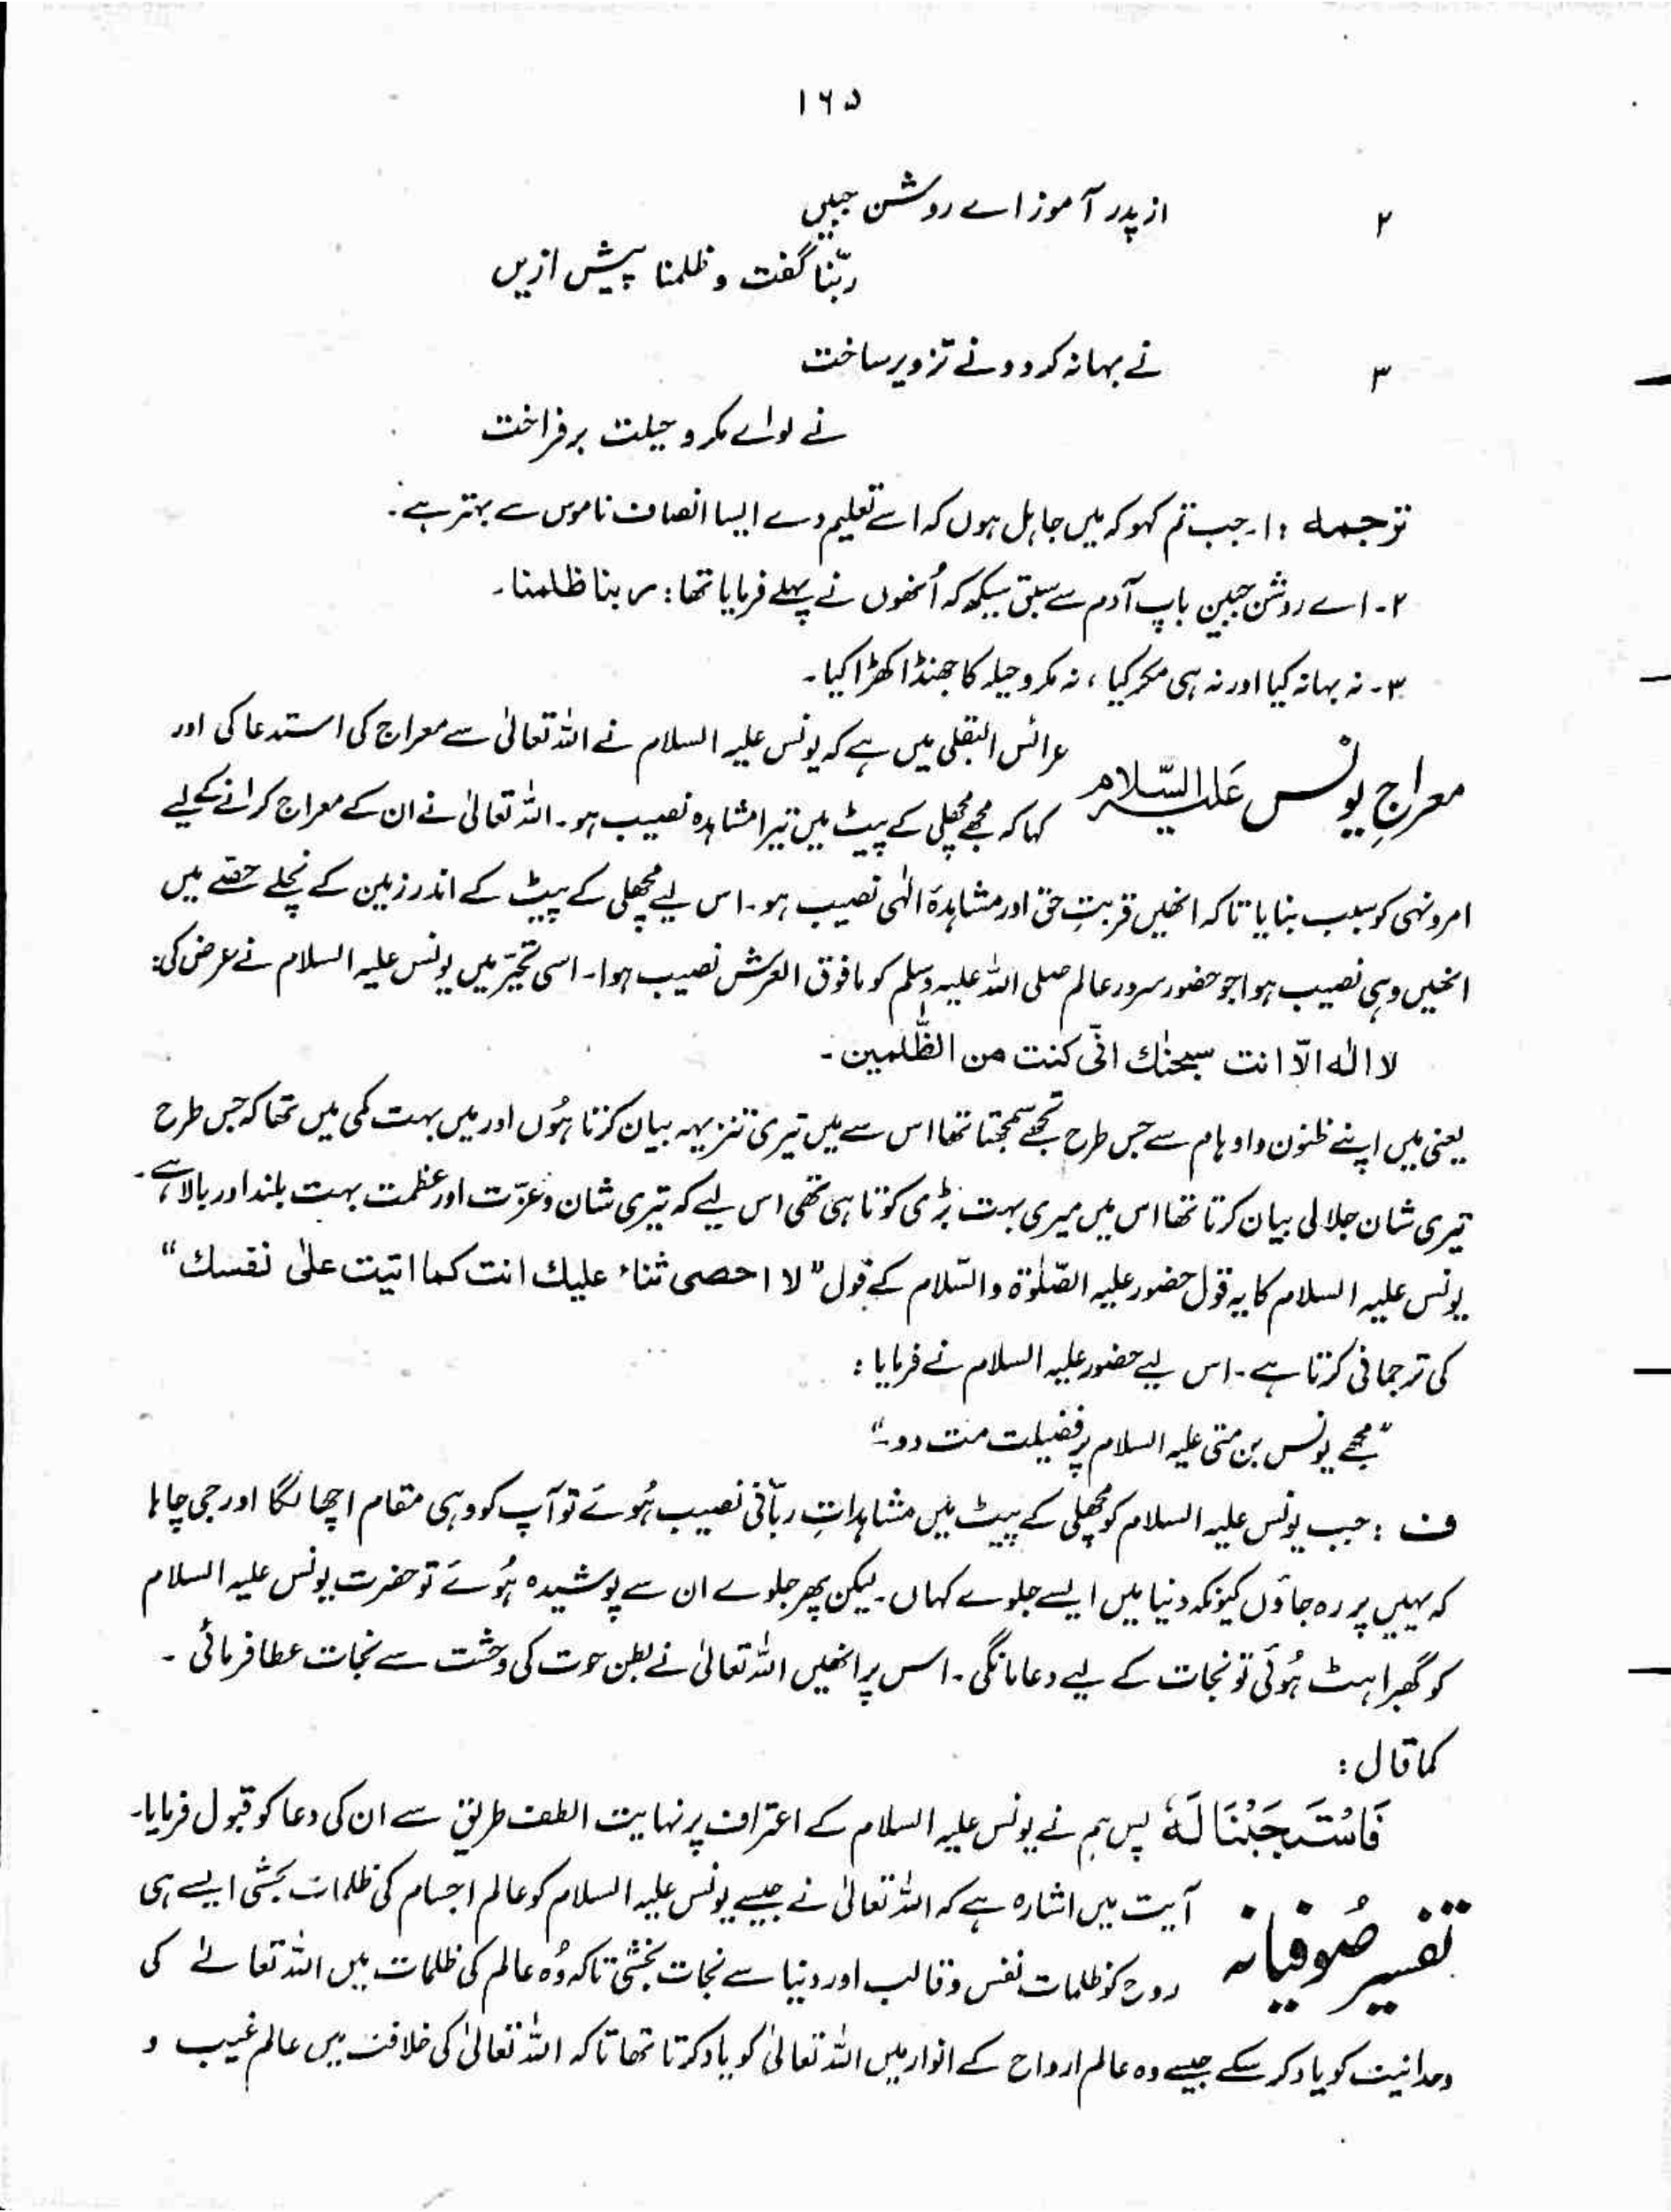 ۱۶۵
۲ از پدر آموز اے روشن جبیں
ربّنا گفت و ظلمنا پیش ازیں
۳ نے بہانہ کرد و نے تزویر ساخت
نے لوائے مکر و حیلت برفراخت
ترجمہ : ۱۔ جب تم کہو کہ میں جاہل ہوں کہ اسے تعلیم دے ایسا انصاف ناموس سے بہتر ہے۔
۲۔ اے روشن جبین باپ آدم سے سبق سیکھ کہ اُنھوں نے پہلے فرمایا تھا : ربنا ظلمنا۔
۳۔ نہ بہانہ کیا اور نہ ہی مکر کیا ، نہ مکر و حیلہ کا جھنڈا کھڑا کیا۔
معراجِ یونس عَلَیہِ السَّلام
عرائس البقلی میں ہے کہ یونس علیہ السلام نے اللہ تعالیٰ سے معراج کی استدعا کی اور
کہا کہ مجھے مچھلی کے پیٹ میں تیرا مشاہدہ نصیب ہو۔ اللہ تعالیٰ نے ان کے معراج کرانے کے لیے
امر و نہی کو سبب بنایا تاکہ انھیں قربتِ حق اور مشاہدۂ الٰہی نصیب ہو۔ اس لیے مچھلی کے پیٹ کے اندر زمین کے نچلے حصّے میں
انھیں وہی نصیب ہوا جو حضور سرور عالم صلی اللہ علیہ وسلم کو مافوق العرش نصیب ہوا۔ اسی تحیّر میں یونس علیہ السلام نے عرض کی:
لا الٰہ الّا انت سبحٰنک انّی کنت من الظّٰلمین ۔
یعنی میں اپنے ظنون و اوہام سے جس طرح تجھے سمجھتا تھا اس سے میں تیری تنزیہہ بیان کرتا ہُوں اور میں بہت کمی میں تھا کہ جس طرح
تیری شان جلالی بیان کرتا تھا اس میں میری بہت بڑی کوتاہی تھی اس لیے کہ تیری شان و عزّت اور عظمت بہت بلند اور بالا ہے۔
یونس علیہ السلام کا یہ قول حضور علیہ الصّلوٰۃ والسّلام کے قول ”لا احصی ثناء علیک انت کما اثنیت علیٰ نفسک“
کی ترجمانی کرتا ہے ۔ اس لیے حضور علیہ السلام نے فرمایا :
”مجھے یونس بن متی علیہ السلام پر فضیلت مت دو۔“
ف : جب یونس علیہ السلام کو مچھلی کے پیٹ میں مشاہداتِ ربّانی نصیب ہُوئے تو آپ کو وہی مقام اچھا لگا اور جی چاہا
کہ یہیں پر رہ جاؤں کیونکہ دنیا میں ایسے جلوے کہاں ۔ لیکن پھر جلوے ان سے پوشیدہ ہُوئے تو حضرت یونس علیہ السلام
کو گھبراہٹ ہُوئی تو نجات کے لیے دعا مانگی ۔ اس پر انھیں اللہ تعالیٰ نے بطن حوت کی وحشت سے نجات عطا فرمائی ۔
کما قال :
فَاسْتَجَبْنَا لَهٗ پس ہم نے یونس علیہ السلام کے اعتراف پر نہایت الطف طریق سے ان کی دعا کو قبول فرمایا۔
تفسیر صُوفیانہ
آیت میں اشارہ ہے کہ اللہ تعالیٰ نے جیسے یونس علیہ السلام کو عالم اجسام کی ظلمات بخشی ایسے ہی
روح کو ظلمات نفس و قالب اور دنیا سے نجات بخشی تاکہ وُہ عالم کی ظلمات میں اللہ تعالےٰ کی
وحدانیت کو یاد کر سکے جیسے وہ عالم ارواح کے انوار میں اللہ تعالیٰ کو یاد کرتا تھا تاکہ اللہ تعالیٰ کی خلافت میں عالم غیب و